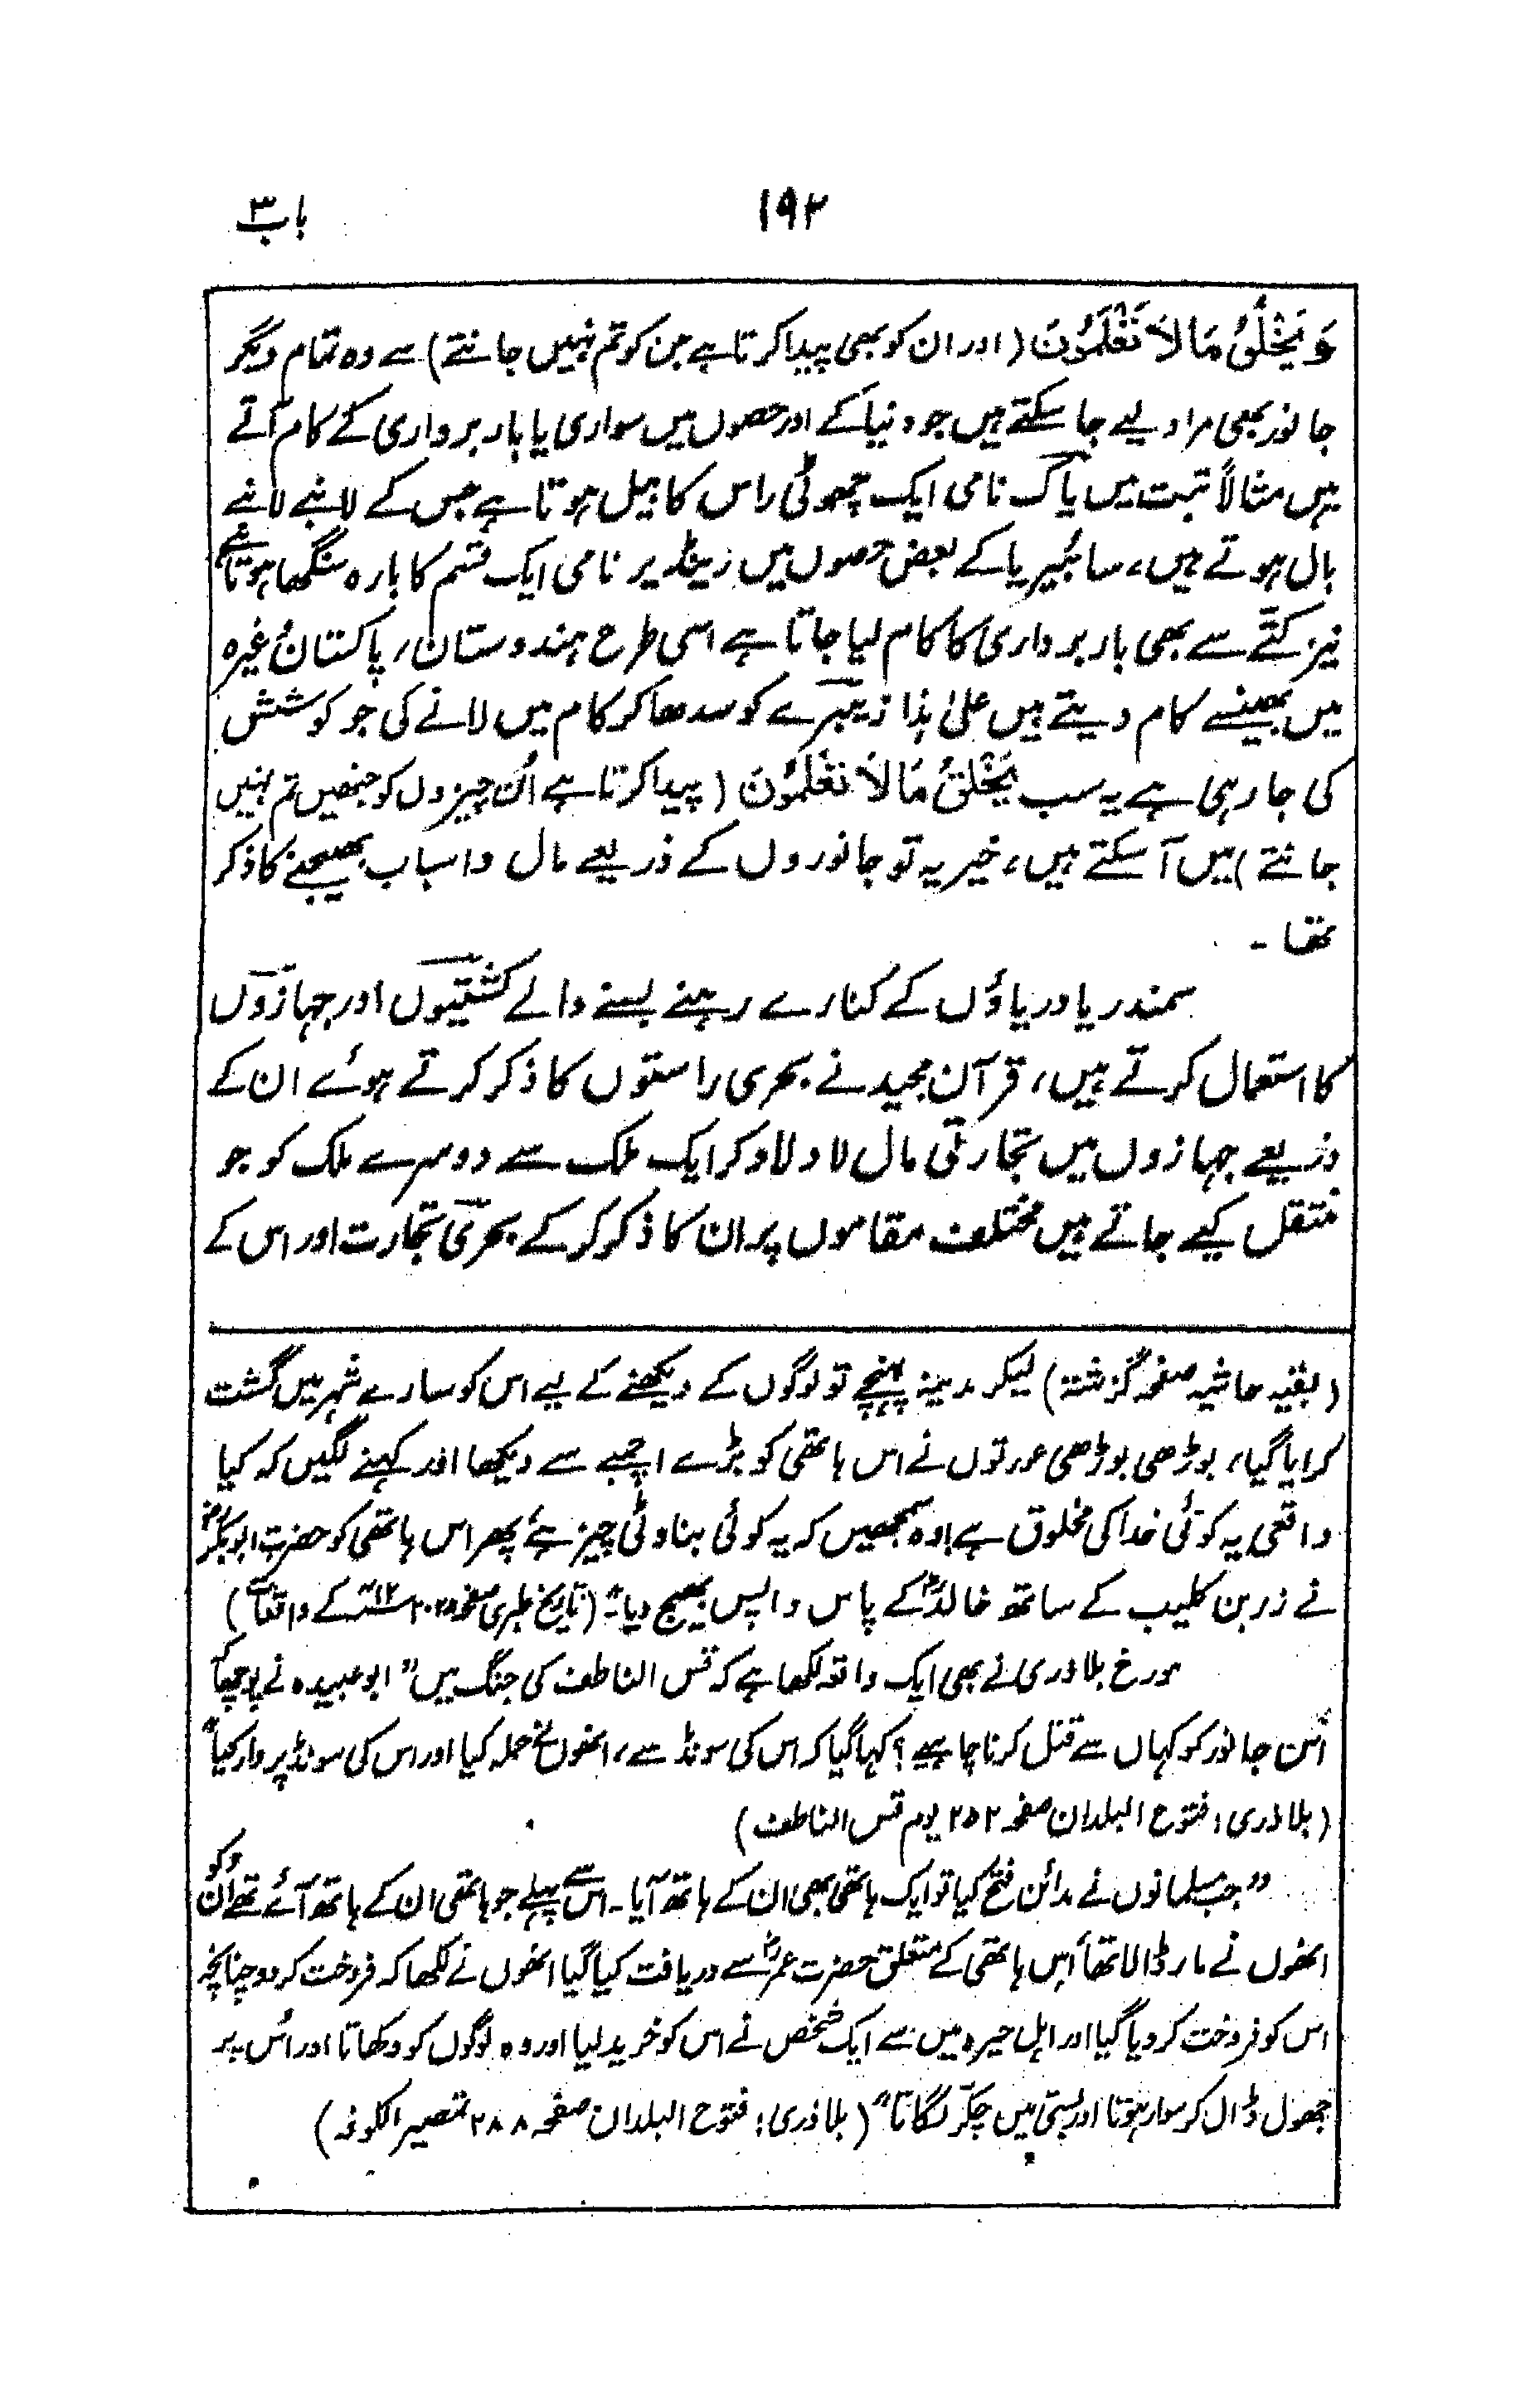 باب ۳
۱۹۲
وَ یَخْلُقُ مَا لَا تَعْلَمُوْنَ (اور ان کو بھی پیدا کرتا ہے جن کو تم نہیں جانتے) سے وہ تمام دیگر
جانور بھی مراد لیے جا سکتے ہیں جو دنیا کے اور حصوں میں سواری یا بار برداری کے کام آتے
ہیں مثالاً تبت میں یاک نامی ایک چھوٹی راس کا بیل ہوتا ہے جس کے لانبے لانبے
بال ہوتے ہیں، سائبیریا کے بعض حصوں میں رینڈیر نامی ایک قسم کا بارہ سنگھا ہوتا ہے
نیز کتّے سے بھی بار برداری کا کام لیا جاتا ہے اسی طرح ہندوستان، پاکستان وغیرہ
میں بھینسے کام دیتے ہیں علیٰ ہذا زیبرے کو سدھا کر کام میں لانے کی جو کوشش
کی جا رہی ہے یہ سب یَخْلُقُ مَا لَا تَعْلَمُوْنَ (پیدا کرتا ہے اُن چیزوں کو جنھیں تم نہیں
جانتے) میں آ سکتے ہیں، خیر یہ تو جانوروں کے ذریعے مال و اسباب بھیجنے کا ذکر
تھا ۔
سمندر یا دریاؤں کے کنارے رہنے بسنے والے کشتیوں اور جہازوں
کا استعمال کرتے ہیں، قرآن مجید نے بحری راستوں کا ذکر کرتے ہوئے ان کے
ذریعے جہازوں میں تجارتی مال لاد لاد کر ایک ملک سے دوسرے ملک کو جو
منتقل کیے جاتے ہیں مختلف مقاموں پر ان کا ذکر کر کے بحری تجارت اور اس کے
(بقیہ حاشیہ صفحہ گزشتہ) لیکر مدینہ پہنچے تو لوگوں کے دیکھنے کے لیے اس کو سارے شہر میں گشت
کرایا گیا، بوڑھی بوڑھی عورتوں نے اس ہاتھی کو بڑے اچمبے سے دیکھا اور کہنے لگیں کہ کیا
واقعی یہ کوئی خدا کی مخلوق ہے! وہ سمجھیں کہ یہ کوئی بناوٹی چیز ہے، پھر اس ہاتھی کو حضرت ابوبکرؓ
نے زر بن کلیب کے ساتھ خالدؓ کے پاس واپس بھیج دیا۔" (تاریخ طبری صفحہ ۲۰۲۸ ۱۲ھ کے واقعات)
مورخ بلاذری نے بھی ایک واقعہ لکھا ہے کہ قس الناطف کی جنگ میں "ابو عبیدہ نے پوچھا کہ
اس جانور کو کہاں سے قتل کرنا چاہیے؟ کہا گیا کہ اس کی سونڈ سے، انھوں نے حملہ کیا اور اس کی سونڈ پر وار کیا"
(بلاذری؛ فتوح البلدان صفحہ ۲۵۲ یوم قس الناطف)
"جب مسلمانوں نے مدائن فتح کیا تو ایک ہاتھی بھی ان کے ہاتھ آیا۔ اس سے پہلے جو ہاتھی ان کے ہاتھ آئے تھے اُن کو
انھوں نے مار ڈالا تھا، اس ہاتھی کے متعلق حضرت عمرؓ سے دریافت کیا گیا انھوں نے لکھا کہ فروخت کر دو چنانچہ
اس کو فروخت کر دیا گیا اور اہل حیرہ میں سے ایک شخص نے اس کو خرید لیا اور وہ لوگوں کو دکھاتا اور اُس پر
جھول ڈال کر سوار ہوتا اور بستی میں چکّر لگاتا" (بلاذری؛ فتوح البلدان صفحہ ۲۸۸ تمصیر الکوفہ)